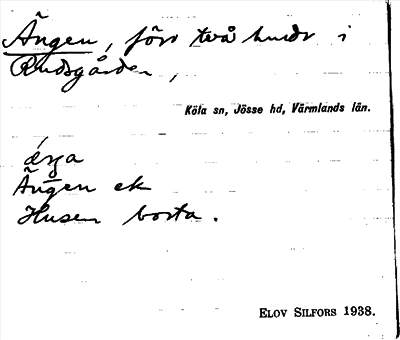 Ängen, förr två hmdr i
Rudsgården,
Köla sn, Jösse hd, Värmlands län.
Ängen ek
Husen borta.
ELOV SILFORS 1938.